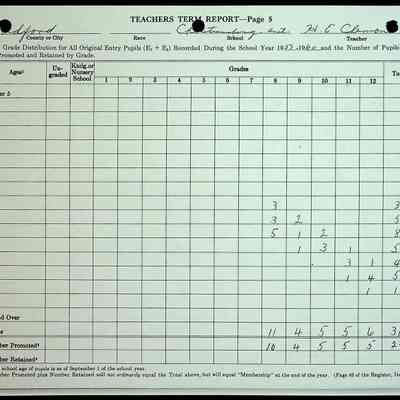 TEACHERS TERM REPORT—Page 5
County or City Race School Teacher
Grade Distribution for All Original Entry Pupils (E₁ + E₂) Recorded During the School Year and the Number of Pupils
Promoted and Retained by Grade.
Ages¹ Un-graded Kndg. or Nursery School Grades
1 2 3 4 5 6 7 8 9 10 11 12
3
3 2
5 1 2 8
1 3 1 5
3 1 4
1 4 5
1 1
nd Over
11 4 5 5 6
ber Promoted² 10 4 5 5 5
ber Retained³
school age of pupils is as of September 1 of the school year.
ber Promoted plus Number Retained will not ordinarily equal the Total above, but will equal "Membership" at the end of the year. (Page 48 of the Register,